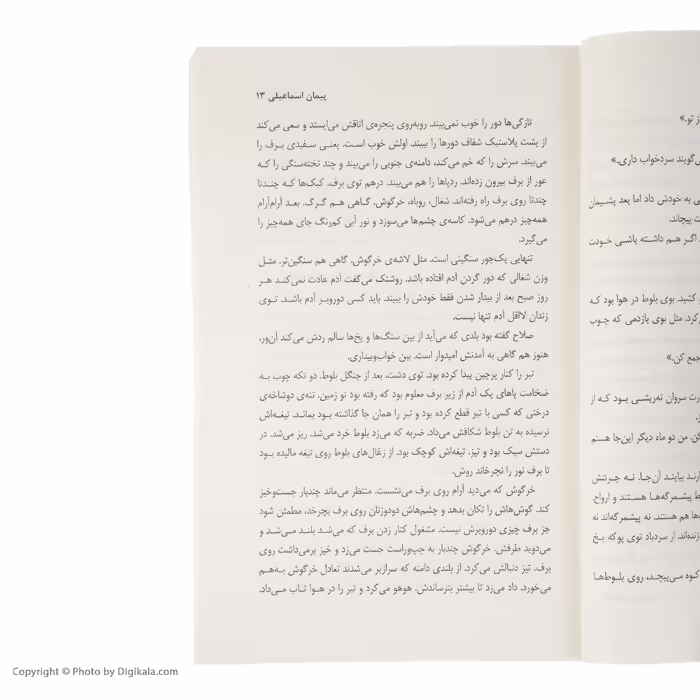 پیمان اسماعیلی ۱۳
تازگی‌ها دور را خوب نمی‌بیند. روبه‌روی پنجره‌ی اتاقش می‌ایستد و سعی می‌کند
از پشت پلاستیک شفاف دورها را ببیند. اولش خوب است. یعنی سفیدی برف را
می‌بیند. سرش را که خم می‌کند، دامنه‌ی جنوبی را می‌بیند و چند تخته‌سنگی را که
عور از برف بیرون زده‌اند. ردپاها را هم می‌بیند. درهم توی برف. کبک‌ها که چندتا
چندتا روی برف راه رفته‌اند. شغال، روباه، خرگوش. گاهی هم گرگ. بعد آرام‌آرام
همه‌چیز درهم می‌شود. کاسه‌ی چشم‌ها می‌سوزد و نور آبی کم‌رنگ جای همه‌چیز را
می‌گیرد.
تنهایی یک‌جور سنگینی است. مثل لاشه‌ی خرگوش. گاهی هم سنگین‌تر. مثل
وزن شغالی که دور گردن آدم افتاده باشد. روشنک می‌گفت آدم عادت نمی‌کند هر
روز صبح بعد از بیدار شدن فقط خودش را ببیند. باید کسی دوروبر آدم باشد. توی
زندان لااقل آدم تنها نیست.
صلاح گفته بود بلدی که می‌آید از بین سنگ‌ها و یخ‌ها سالم ردش می‌کند آن‌ور.
هنوز هم گاهی به آمدنش امیدوار است. بین خواب‌وبیداری.
تبر را کنار پرچین پیدا کرده بود. توی دشت. بعد از جنگل بلوط. دو تکه چوب به
ضخامت پاهای یک آدم از زیر برف معلوم بود که رفته بود تو زمین. تنه‌ی دوشاخه‌ی
درختی که کسی با تبر قطع کرده بود و تبر را همان جا گذاشته بود بماند. تیغه‌اش
نرسیده به تن بلوط شکافش می‌داد. ضربه که می‌زد بلوط خرد می‌شد. ریز می‌شد. در
دستش سبک بود و تیز. تیغه‌اش کوچک بود. از زغال‌های بلوط روی تیغه مالیده بود
تا برف نور را نچرخاند روش.
خرگوش که می‌دید آرام روی برف می‌نشست. منتظر می‌ماند چندبار جست‌وخیز
کند. گوش‌هاش را تکان بدهد و چشم‌هاش دودوزنان روی برف بچرخد، مطمئن شود
جز برف چیزی دوروبرش نیست. مشغول کنار زدن برف که می‌شد بلند می‌شد و
می‌دوید طرفش. خرگوش چندبار به چپ‌وراست جست می‌زد و خیز برمی‌داشت روی
برف. تیز دنبالش می‌کرد. از بلندی دامنه که سرازیر می‌شدند تعادل خرگوش به‌هم
می‌خورد. داد می‌زد تا بیشتر بترساندش. هوهو می‌کرد و تبر را در هوا تاب می‌داد.
ز تو.»
گویند سردخواب داری.»
به خودش داد اما بعد پشیمان
ت پیچاند.
اگر هم داشته باشی خودت
کشید. بوی بلوط در هوا بود که
کرد. مثل بوی بازدمی که چوب
جمع کن.»
سروان تفریشی بود که از
کن. من دو ماه دیگر این‌جا هستم
بیایند آن‌جا. نه جرئتش
پیشمرگه‌ها هستند و ارواح.
ها هم هستند. نه پیشمرگه‌اند نه
زنده‌اند. از سردباد توی پوکه یخ
کوه می‌پیچد، روی بلوط‌ها
Copyright © Photo by Digikala.com